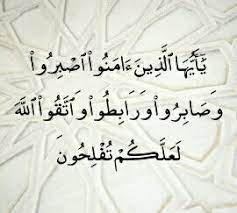 يَٰٓأَيُّهَا ٱلَّذِينَ ءَامَنُواْ ٱصۡبِرُواْ
وَصَابِرُواْ وَرَابِطُواْ وَٱتَّقُواْ ٱللَّهَ
لَعَلَّكُمۡ تُفۡلِحُونَ